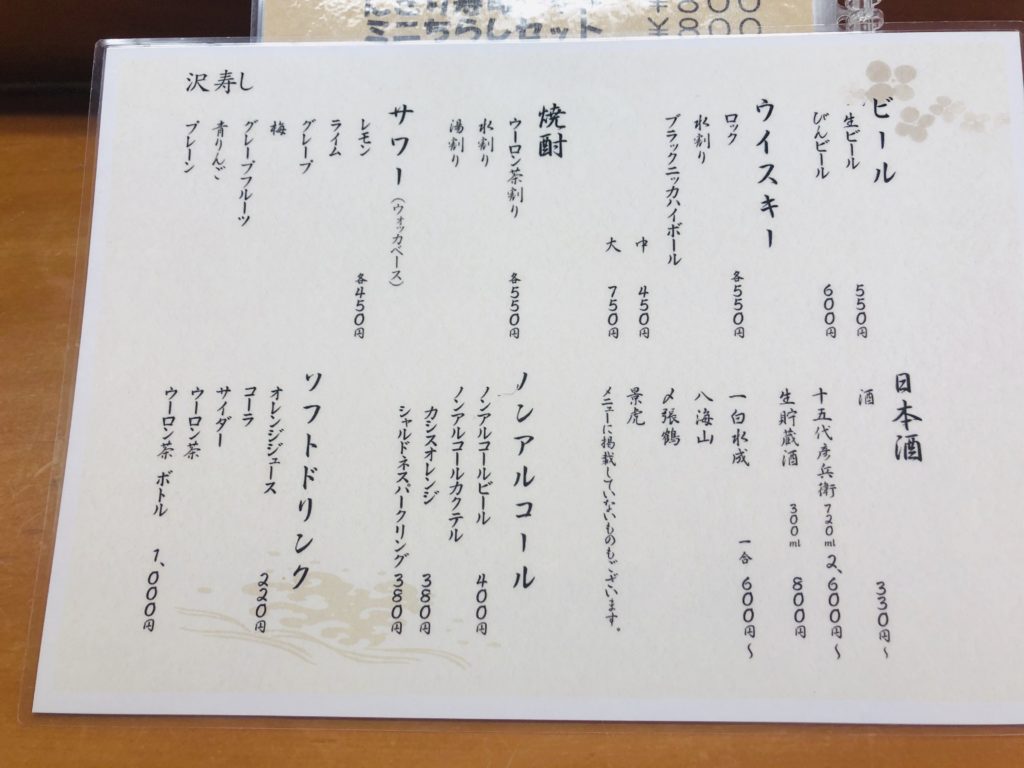 ビール
生ビール 550円
びんビール 600円
ウイスキー
ロック 各550円
水割り
ブラックニッカハイボール
中 450円
大 750円
焼酎
ウーロン茶割り 各550円
水割り
湯割り
サワー(ウォッカベース)
レモン 各450円
ライム
グレープ
梅
グレープフルーツ
青りんご
プレーン
沢寿し
日本酒
酒 330円〜
十五代彦兵衛 720ml 2,600円〜
生貯蔵酒 300ml 800円
一白水成 一合 600円〜
八海山
〆張鶴
景虎
メニューに掲載していないものもございます。
ノンアルコール
ノンアルコールビール 400円
ノンアルコールカクテル
カシスオレンジ 380円
シャルドネスパークリング 380円
ソフトドリンク
オレンジジュース 220円
コーラ
サイダー
ウーロン茶
ウーロン茶 ボトル 1,000円
ちらしセット